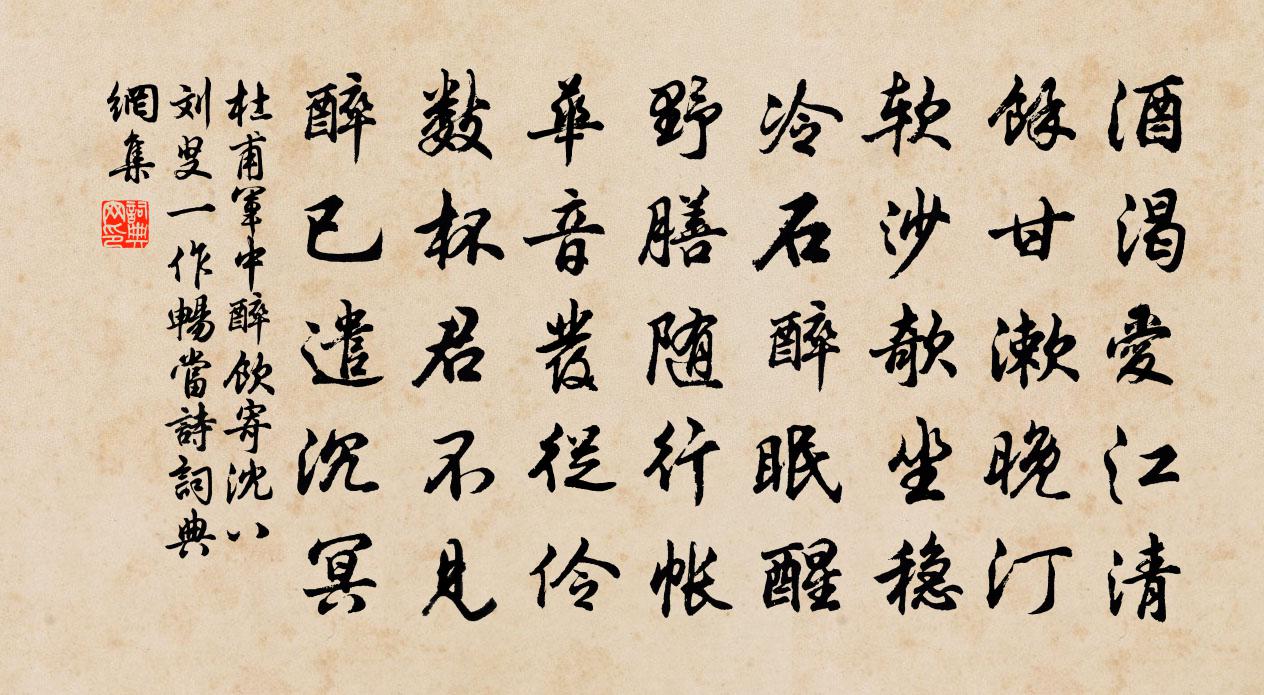 酒渴愛江清
餘甘漱晚汀
软沙欹坐穏
冷石醉眠醒
野膳随行帐
華音發從伶
數杯君不見
醉已遣沉冥
杜甫軍中醉飲寄沈八
刘叟一作暢當詩詞典
網集
詞典网印